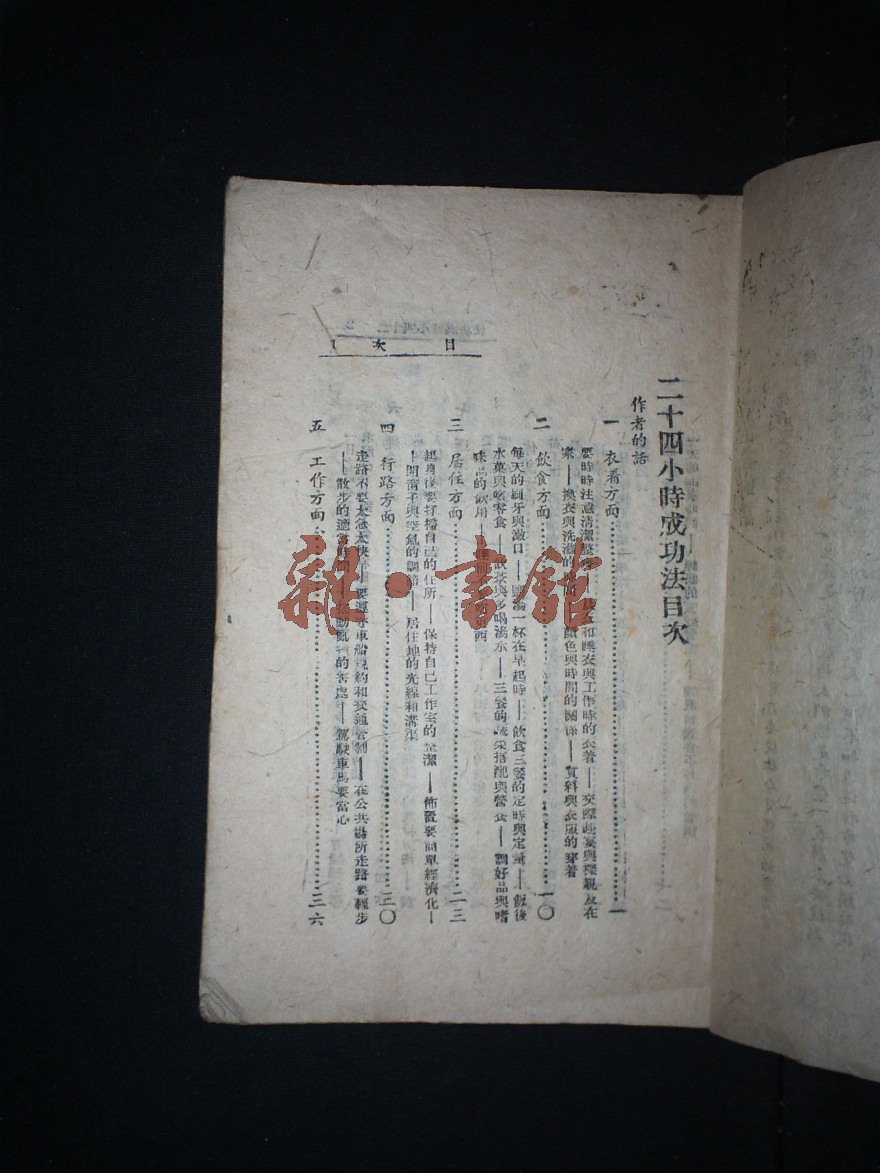 目次 1
二十四小時成功法目次
作者的話
一 衣着方面……一
要時時注意清潔整 和睡衣與工作時的衣着——交際赴宴與探親友在
家——換衣與洗滌的 顏色與時間的關係——質料與衣服的穿着
二 飲食方面……一〇
每天的刷牙與漱口—— 湯一杯在早起時——飲食三餐的定時與定量——飯後
水菓與吃零食——飲茶與多喝沸水——三餐的蔬菜搭配與營養——調好品與嗜
味品的飲用—— 西
三 居住方面……二三
起身後要打掃自己的住所——保持自己工作室的整潔——佈置要簡單經濟化—
—開窗子與空氣的調節——居住地的光線和溝渠
四 行路方面……三〇
走路不要太急太快——要遵守車船規約和交通管制——在公共場所走路要輕步
——散步的適當時間—— 的害處——駕駛車馬要當心
五 工作方面……三六
雜·書館